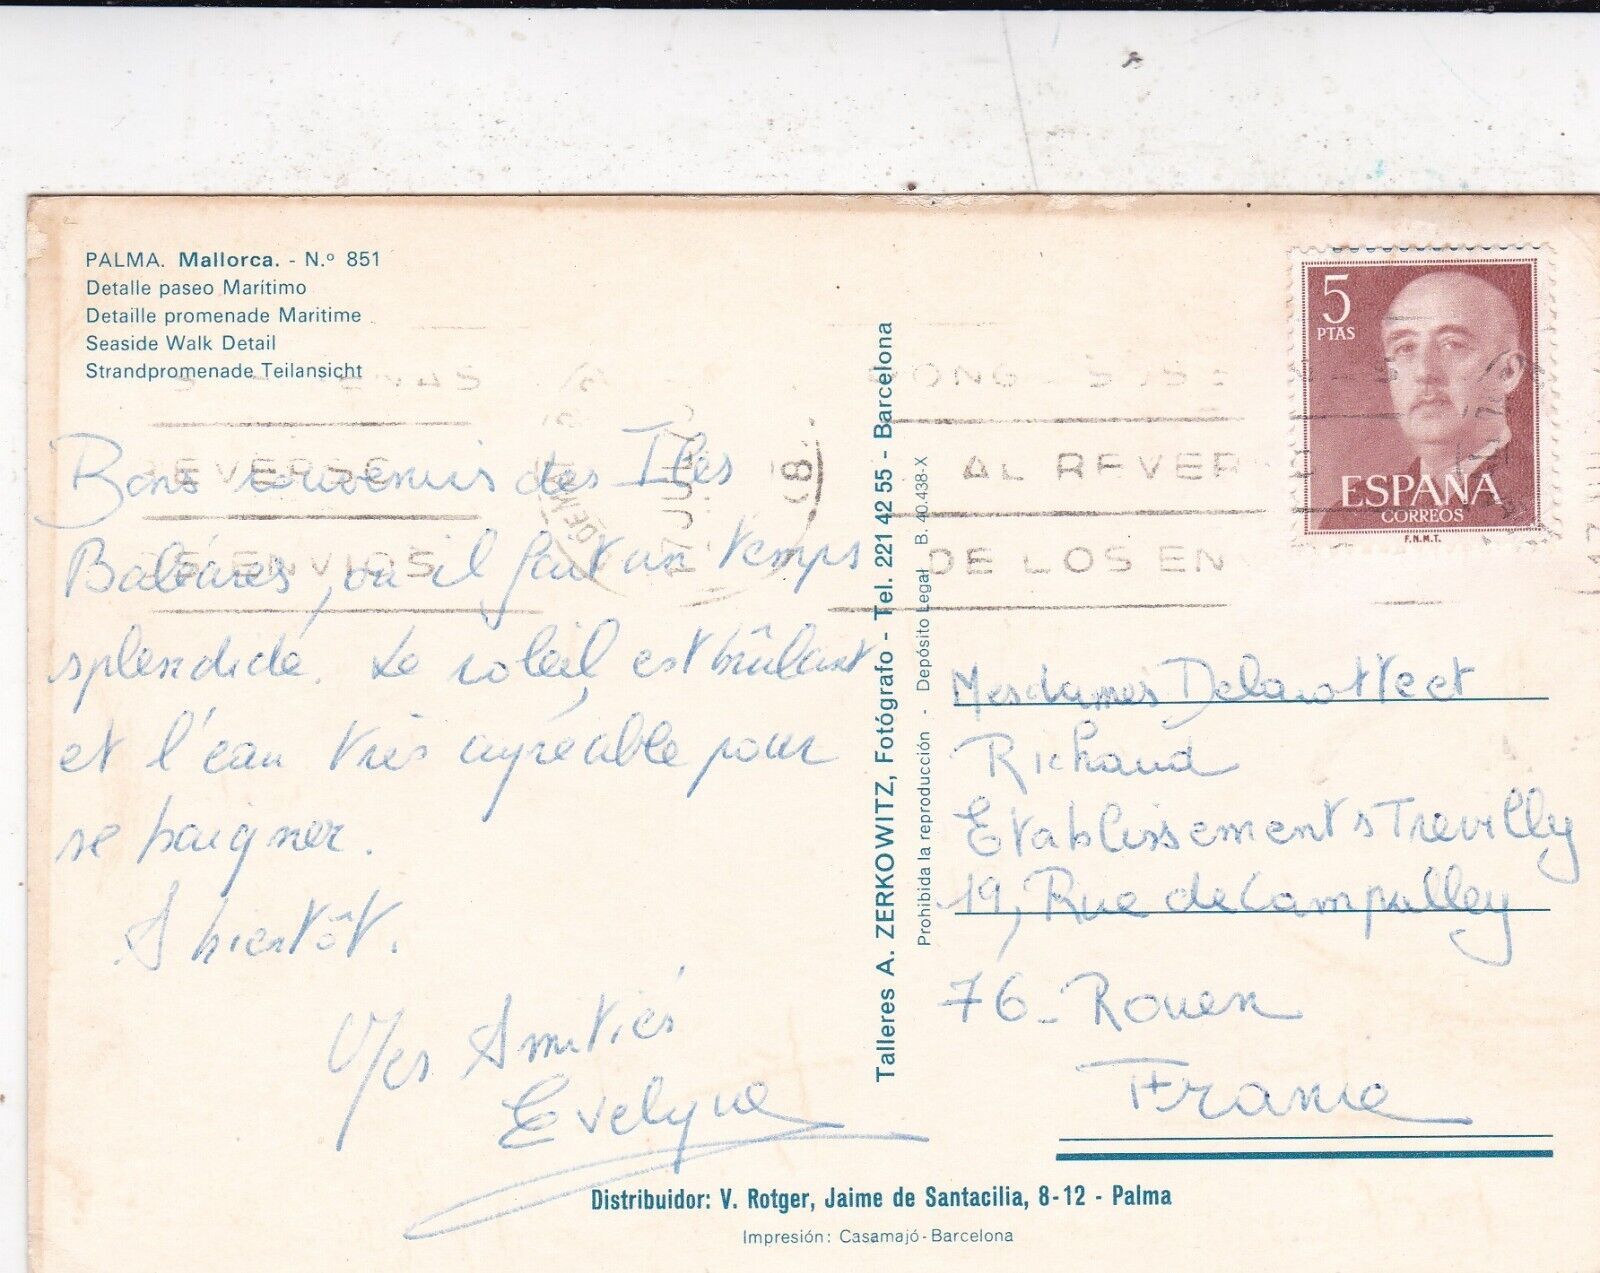 PALMA. Mallorca. - N.º 851
Detalle paseo Marítimo
Detaille promenade Maritime
Seaside Walk Detail
Strandpromenade Teilansicht
5
PTAS
ESPAÑA
CORREOS
F.N.M.T.
REVERSO
ENVIOS
AL REVER
DE LOS EN
Bons souvenirs des Iles
Baléares, où il fait un temps
splendide. Le soleil est brûlant
et l'eau très agréable pour
se baigner.
A bientôt.
Mes Amitiés
Evelyne
Talleres A. ZERKOWITZ, Fotógrafo - Tel. 221 42 55 - Barcelona
Prohibida la reproducción - Depósito Legal B. 40.438-X
Mesdames Delarotte et
Richaud
Etablissements Trevilly
19, Rue de Campulley
76 - Rouen
France
Distribuidor: V. Rotger, Jaime de Santacilia, 8-12 - Palma
Impresión: Casamajó-Barcelona